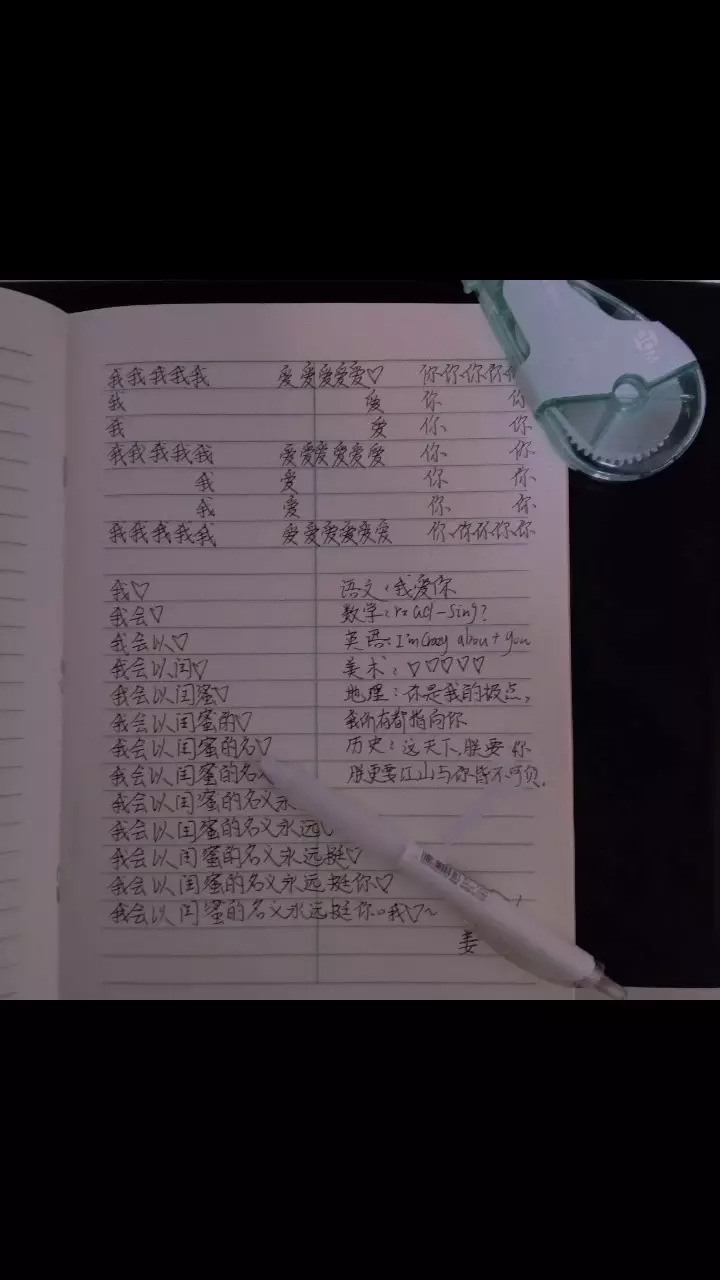 我我我我我 爱爱爱爱爱♡ 你你你你
我 爱 你 你
我 爱 你 你
我我我我我 爱爱爱爱爱爱 你 你
我 爱 你 你
我 爱 你 你
我我我我我 爱爱爱爱爱爱 你你你你你
我♡
我会♡
我会以♡
我会以闺♡
我会以闺蜜♡
我会以闺蜜的♡
我会以闺蜜的名♡
我会以闺蜜的名
我会以闺蜜的名义永
我会以闺蜜的名义永远♡
我会以闺蜜的名义永远挺♡
我会以闺蜜的名义永远挺你♡
我会以闺蜜的名义永远挺你。我♡~
语文:我爱你
数学:r=a(1-sinθ)?
英语:I'm crazy about you
美术:♡♡♡♡♡
地理:你是我的极点,
我所有都指向你
历史:这天下,朕要 你
朕更要江山与你皆不可负.
姜